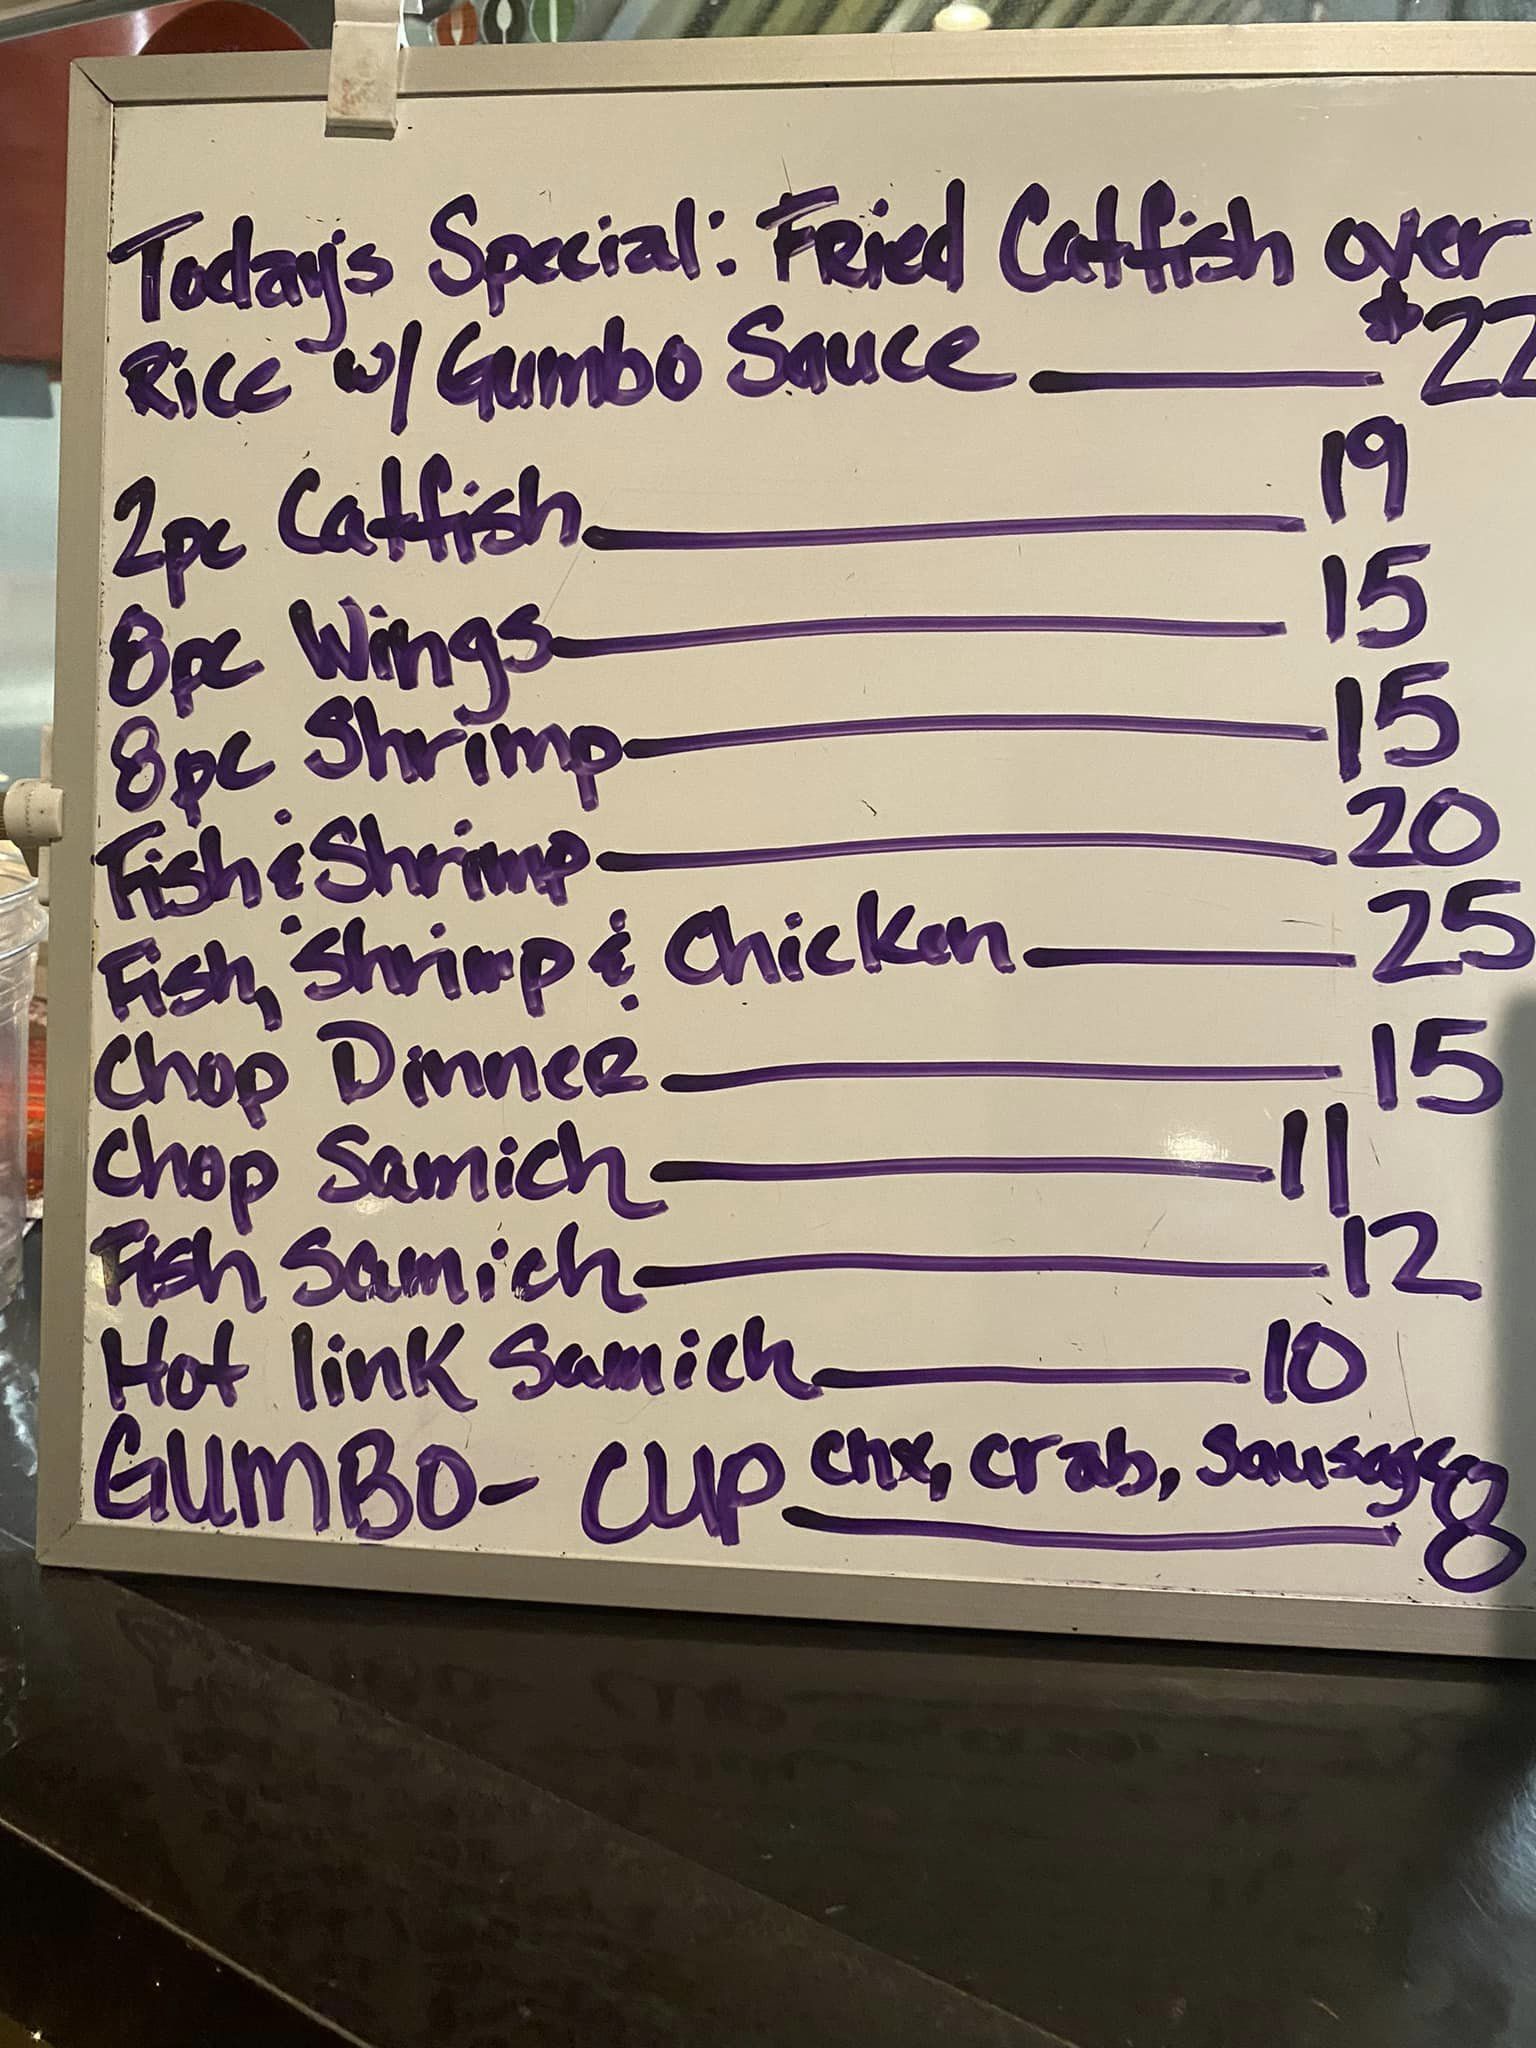 Today's Special: Fried Catfish over
Rice w/ Gumbo Sauce $22
2pc Catfish 19
8pc Wings 15
8pc Shrimp 15
Fish & Shrimp 20
Fish, Shrimp & Chicken 25
Chop Dinner 15
Chop Samich 11
Fish Samich 12
Hot link Samich 10
GUMBO- CUP chx, crab, sausage 8